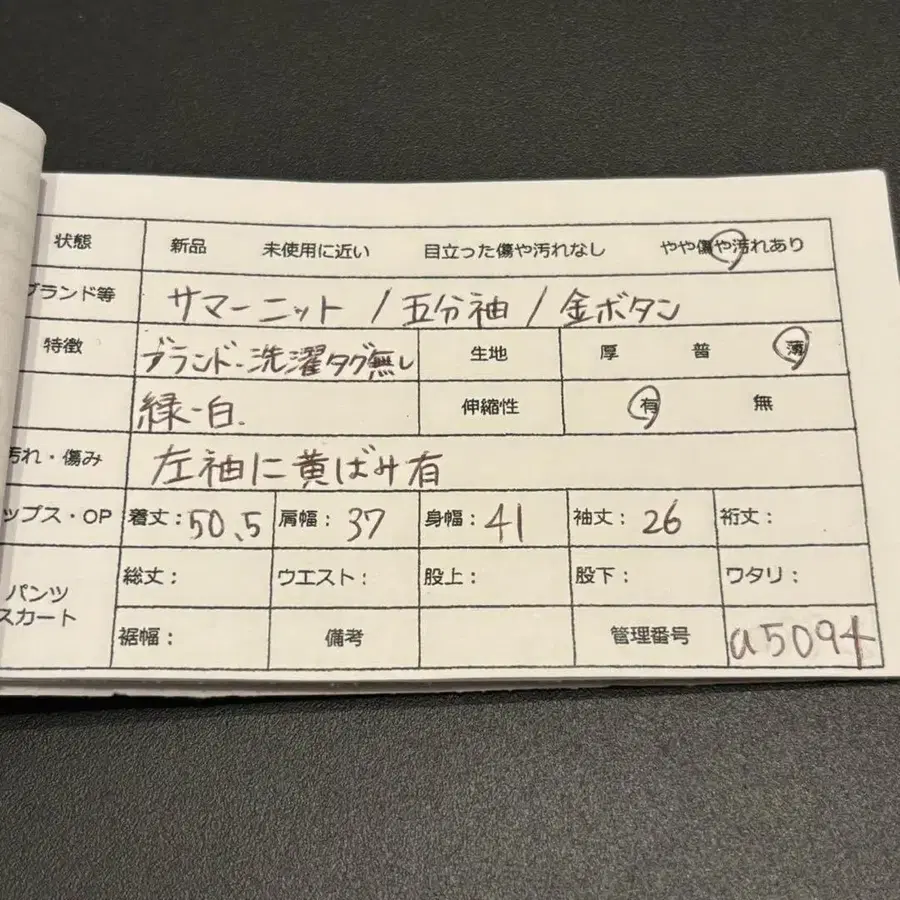 状態 新品 未使用に近い 目立った傷や汚れなし やや傷や汚れあり
ブランド等 サマーニット / 五分袖 / 金ボタン
特徴 ブランド・洗濯タグ無し 生地 厚 普 薄
緑-白. 伸縮性 有 無
汚れ・傷み 左袖に黄ばみ有
ップス・OP 着丈：50.5 肩幅：37 身幅：41 袖丈：26 裄丈：
パンツ
スカート
総丈： ウエスト： 股上： 股下： ワタリ：
裾幅： 備考 管理番号 a5094